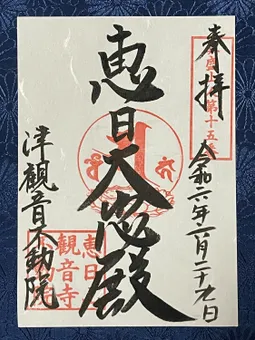 奉拝
令和六年二月二十九日
恵日大悲殿
津観音不動院
第十五番
恵日
観音寺